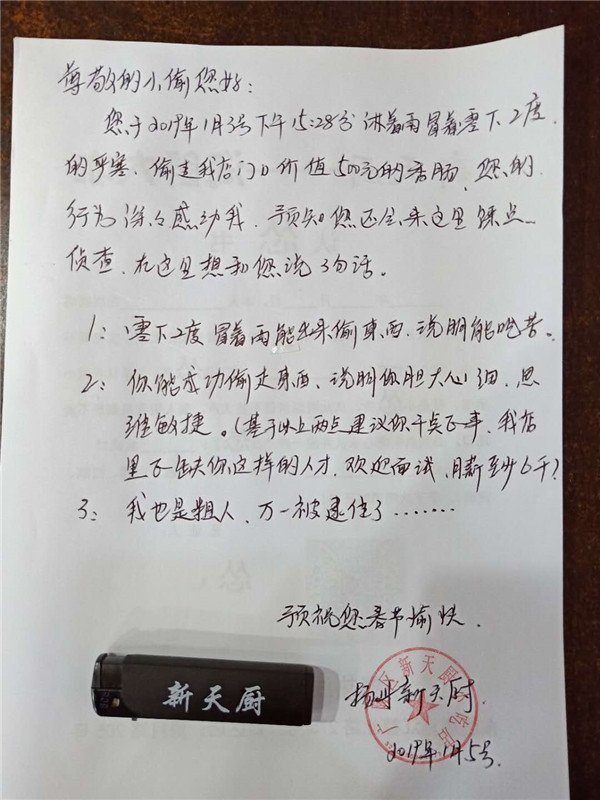 尊敬的小偷您好：
您于2019年1月3号下午15:28分淋着雨冒着零下2度
的严寒、偷走我店门口价值500元的香肠、您的
行为深深感动我、预知您还会来这里踩点、
侦查、在这里想和您说3句话。
1：零下2度冒着雨能出来偷東西、说明能吃苦。
2：你能成功偷走東西、说明你胆大心细、思
维敏捷。（基于以上两点建议你干点正事、我店
里正缺你这样的人才、欢迎面试、月薪至少6千）
3：我也是粗人、万一被逮住了.......
预祝您春节愉快、
新天厨
扬州新天厨
2019年1月5号、